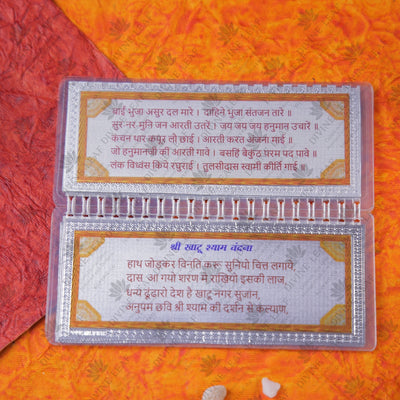 बाईं भुजा असुर दल मारे । दाहिने भुजा संतजन तारे ॥
सुर नर मुनि जन आरती उतरें । जय जय जय हनुमान उचारें ॥
कंचन थार कपूर लौ छाई । आरती करत अंजना माई ॥
जो हनुमानजी की आरती गावे । बसहिं बैकुंठ परम पद पावे ॥
लंक विध्वंस किये रघुराई । तुलसीदास स्वामी कीर्ति गाई ॥
श्री खाटू श्याम वंदना
हाथ जोड़कर विनति करू सुनियो चित्त लगाये,
दास आ गयो शरण में राखियो इसकी लाज,
धन्य ढूंढारो देश है खाटू नगर सुजान,
अनुपम छवि श्री श्याम की दर्शन से कल्याण,